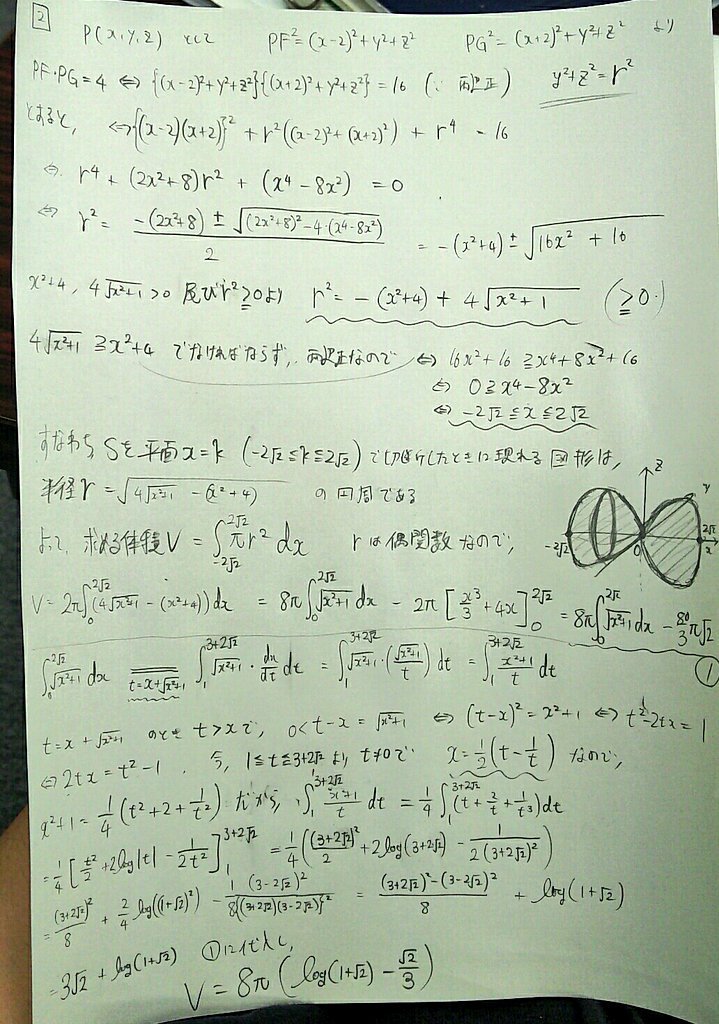 2
P(x,y,z) として PF²=(x-2)²+y²+z² PG²=(x+2)²+y²+z² より
PF・PG=4 ⇔ {(x-2)²+y²+z²}{(x+2)²+y²+z²}=16 (∵ 両辺正) y²+z²=r²
とすると, ⇔{(x-2)(x+2)}²+r²((x-2)²+(x+2)²)+r⁴=16
⇔ r⁴+(2x²+8)r²+(x⁴-8x²)=0
⇔ r²=(-(2x²+8)±√((2x²+8)²-4・(x⁴-8x²)))/2 = -(x²+4)±√(16x²+16)
x²+4, 4√(x²+1)>0 及び r²≧0より r²=-(x²+4)+4√(x²+1) (≧0.)
4√(x²+1)≧x²+4 でなければならず,, 両辺正なので ⇔ 16x²+16≧x⁴+8x²+16
⇔ 0≧x⁴-8x²
⇔ -2√2≦x≦2√2
すなわち Sを平面x=k (-2√2≦k≦2√2)で切断したときに現れる図形は,
半径r=√(4√(x²+1)-(x²+4)) の円周である
よって, 求める体積V=∫_{-2√2}^{2√2}πr²dx rは偶関数なので,
z
y
-2√2 0 2√2
x
V=2π∫₀^{2√2}(4√(x²+1)-(x²+4))dx = 8π∫₀^{2√2}√(x²+1)dx-2π[x³/3+4x]₀^{2√2} = 8π∫₀^{2√2}√(x²+1)dx-80/3π√2
①
∫₀^{2√2}√(x²+1)dx =(t=x+√(x²+1)) ∫₁^{3+2√2}√(x²+1)・dx/dt dt = ∫₁^{3+2√2}√(x²+1)・(√(x²+1)/t)dt = ∫₁^{3+2√2}(x²+1)/t dt
t=x+√(x²+1) のとき t>xで, 0<t-x=√(x²+1) ⇔ (t-x)²=x²+1 ⇔ t²-2tx=1
⇔ 2tx=t²-1. 今, 1≦t≦3+2√2より t≠0で x=1/2(t-1/t) なので,
x²+1=1/4(t²+2+1/t²) だから, ∫₁^{3+2√2}(x²+1)/t dt = 1/4∫₁^{3+2√2}(t+2/t+1/t³)dt
=1/4[t²/2+2log|t|-1/2t²]₁^{3+2√2} = 1/4((3+2√2)²/2+2log(3+2√2)-1/2(3+2√2)²)
=(3+2√2)²/8+2/4log((1+√2)²)-1(3-2√2)²/8{(3+2√2)(3-2√2)}² = ((3+2√2)²-(3-2√2)²)/8+log(1+√2)
=3√2+log(1+√2) ①に代入し,
V=8π(log(1+√2)-√2/3)